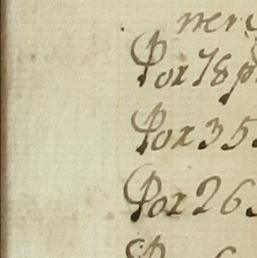 mer
Por 78 p
Por 35
Por 26